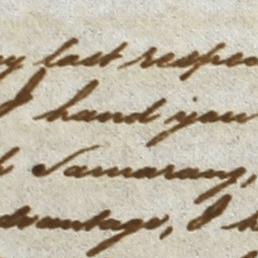 my last respe
I hand you
Samarang,
dvantage, I h